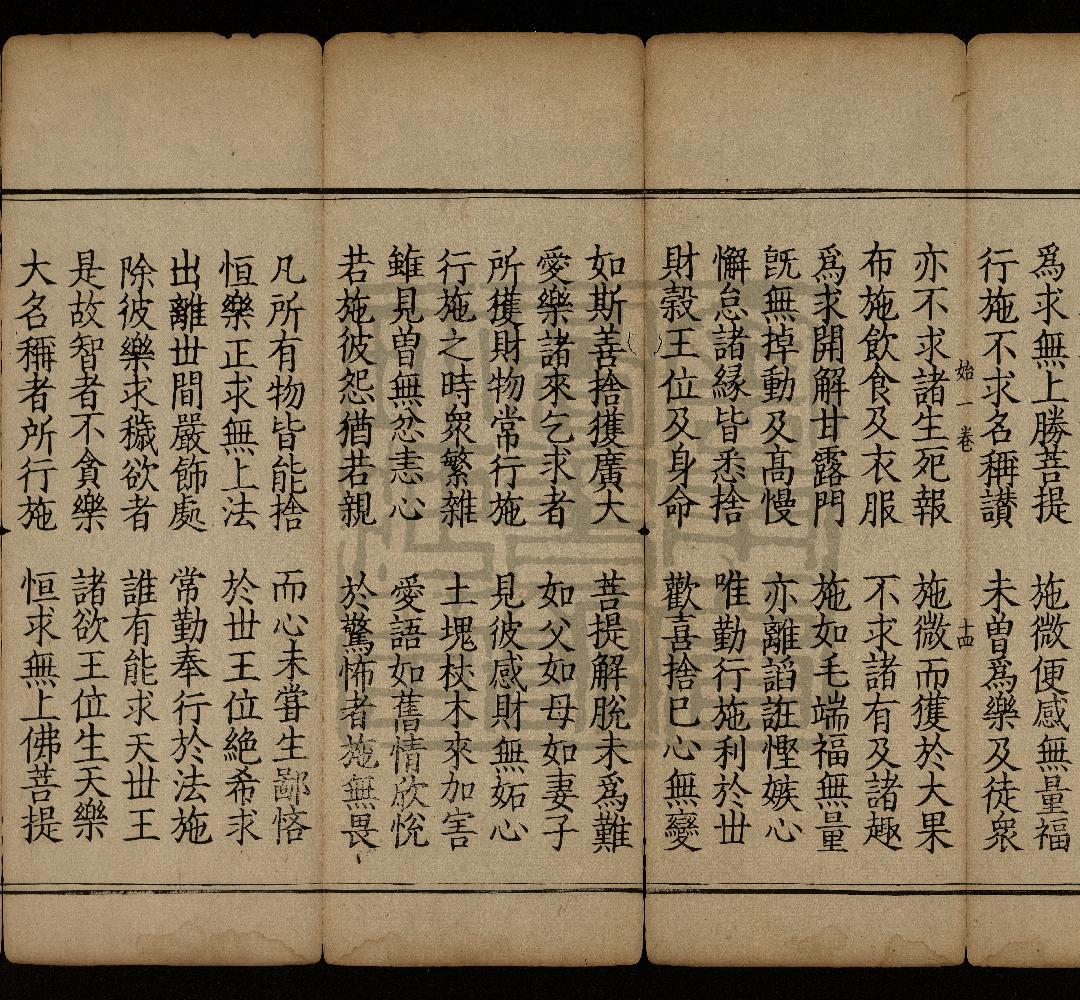 爲求無上勝菩提　施微便感無量福
行施不求名稱讃　未曽爲樂及徒衆
始一卷　十四
亦不求諸生死報　施微而獲於大果
布施飲食及衣服　不求諸有及諸趣
爲求開解甘露門　施如毛端福無量
旣無掉動及髙慢　亦離謟誑慳嫉心
懈怠諸緣皆悉捨　唯勤行施利於丗
財榖王位及身命　歡喜捨已心無變
如斯善捨獲廣大　菩提解脫未爲難
愛樂諸來乞求者　如父如母如妻子
所獲財物常行施　見彼感財無妬心
行施之時衆繁雜　土塊杖木來加害
雖見曽無忿恚心　愛語如舊情欣悅
若施彼怨猶若親　於驚怖者施無畏
凡所有物皆能捨　而心未甞生鄙悋
恒樂正求無上法　於丗王位絶希求
出離丗間嚴飾處　常勤奉行於法施
除彼樂求穢欲者　誰有能求天丗王
是故智者不貪樂　諸欲王位生天樂
大名稱者所行施　恒求無上佛菩提